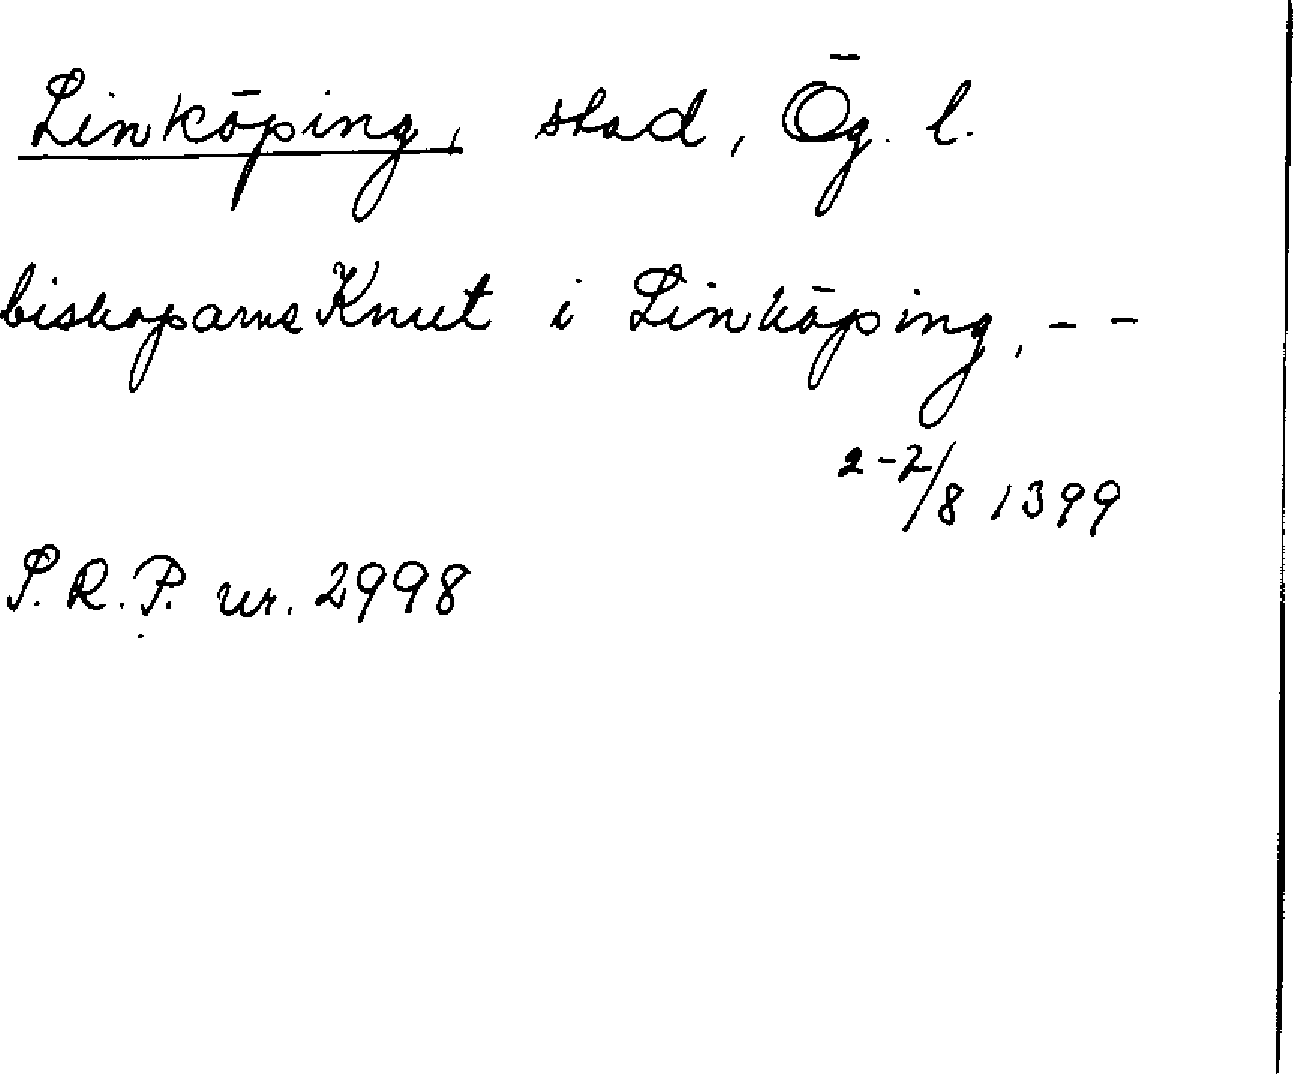 Linköping, stad, Ög. l.
biskoparne Knut i Linköping, - -
2-7/8 1399
S.R.P. nr. 2998